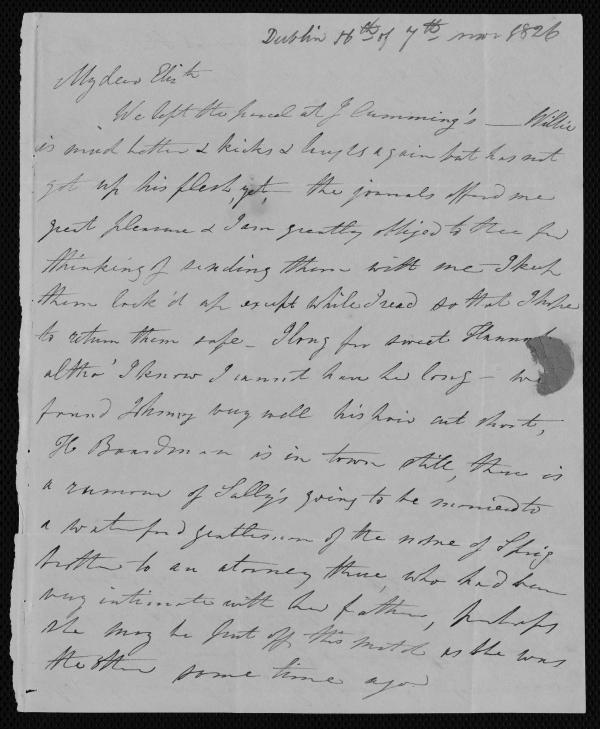 Dublin 16th of 7th mo 1826
My dear Elizth
We left the parcel at J Cumming's — Willie
is much better & kicks & laughs again but has not
got up his flesh, yet, — the journals afford me
great pleasure & I am greatly obliged to thee for
thinking of sending them with me — I keep
them lock'd up except while I read so that I hope
to return them safe — I long for sweet Hannah
altho' I know I cannot have her long — we
found Johnny very well his hair cut short,
H Boardman is in town still, there is
a rumour of Sally's going to be married to
a waterford gentleman of the name of Sprig
brother to an attorney there, who had been
very intimate with her father, perhaps
she may be put off this match as she was
the other some time ago